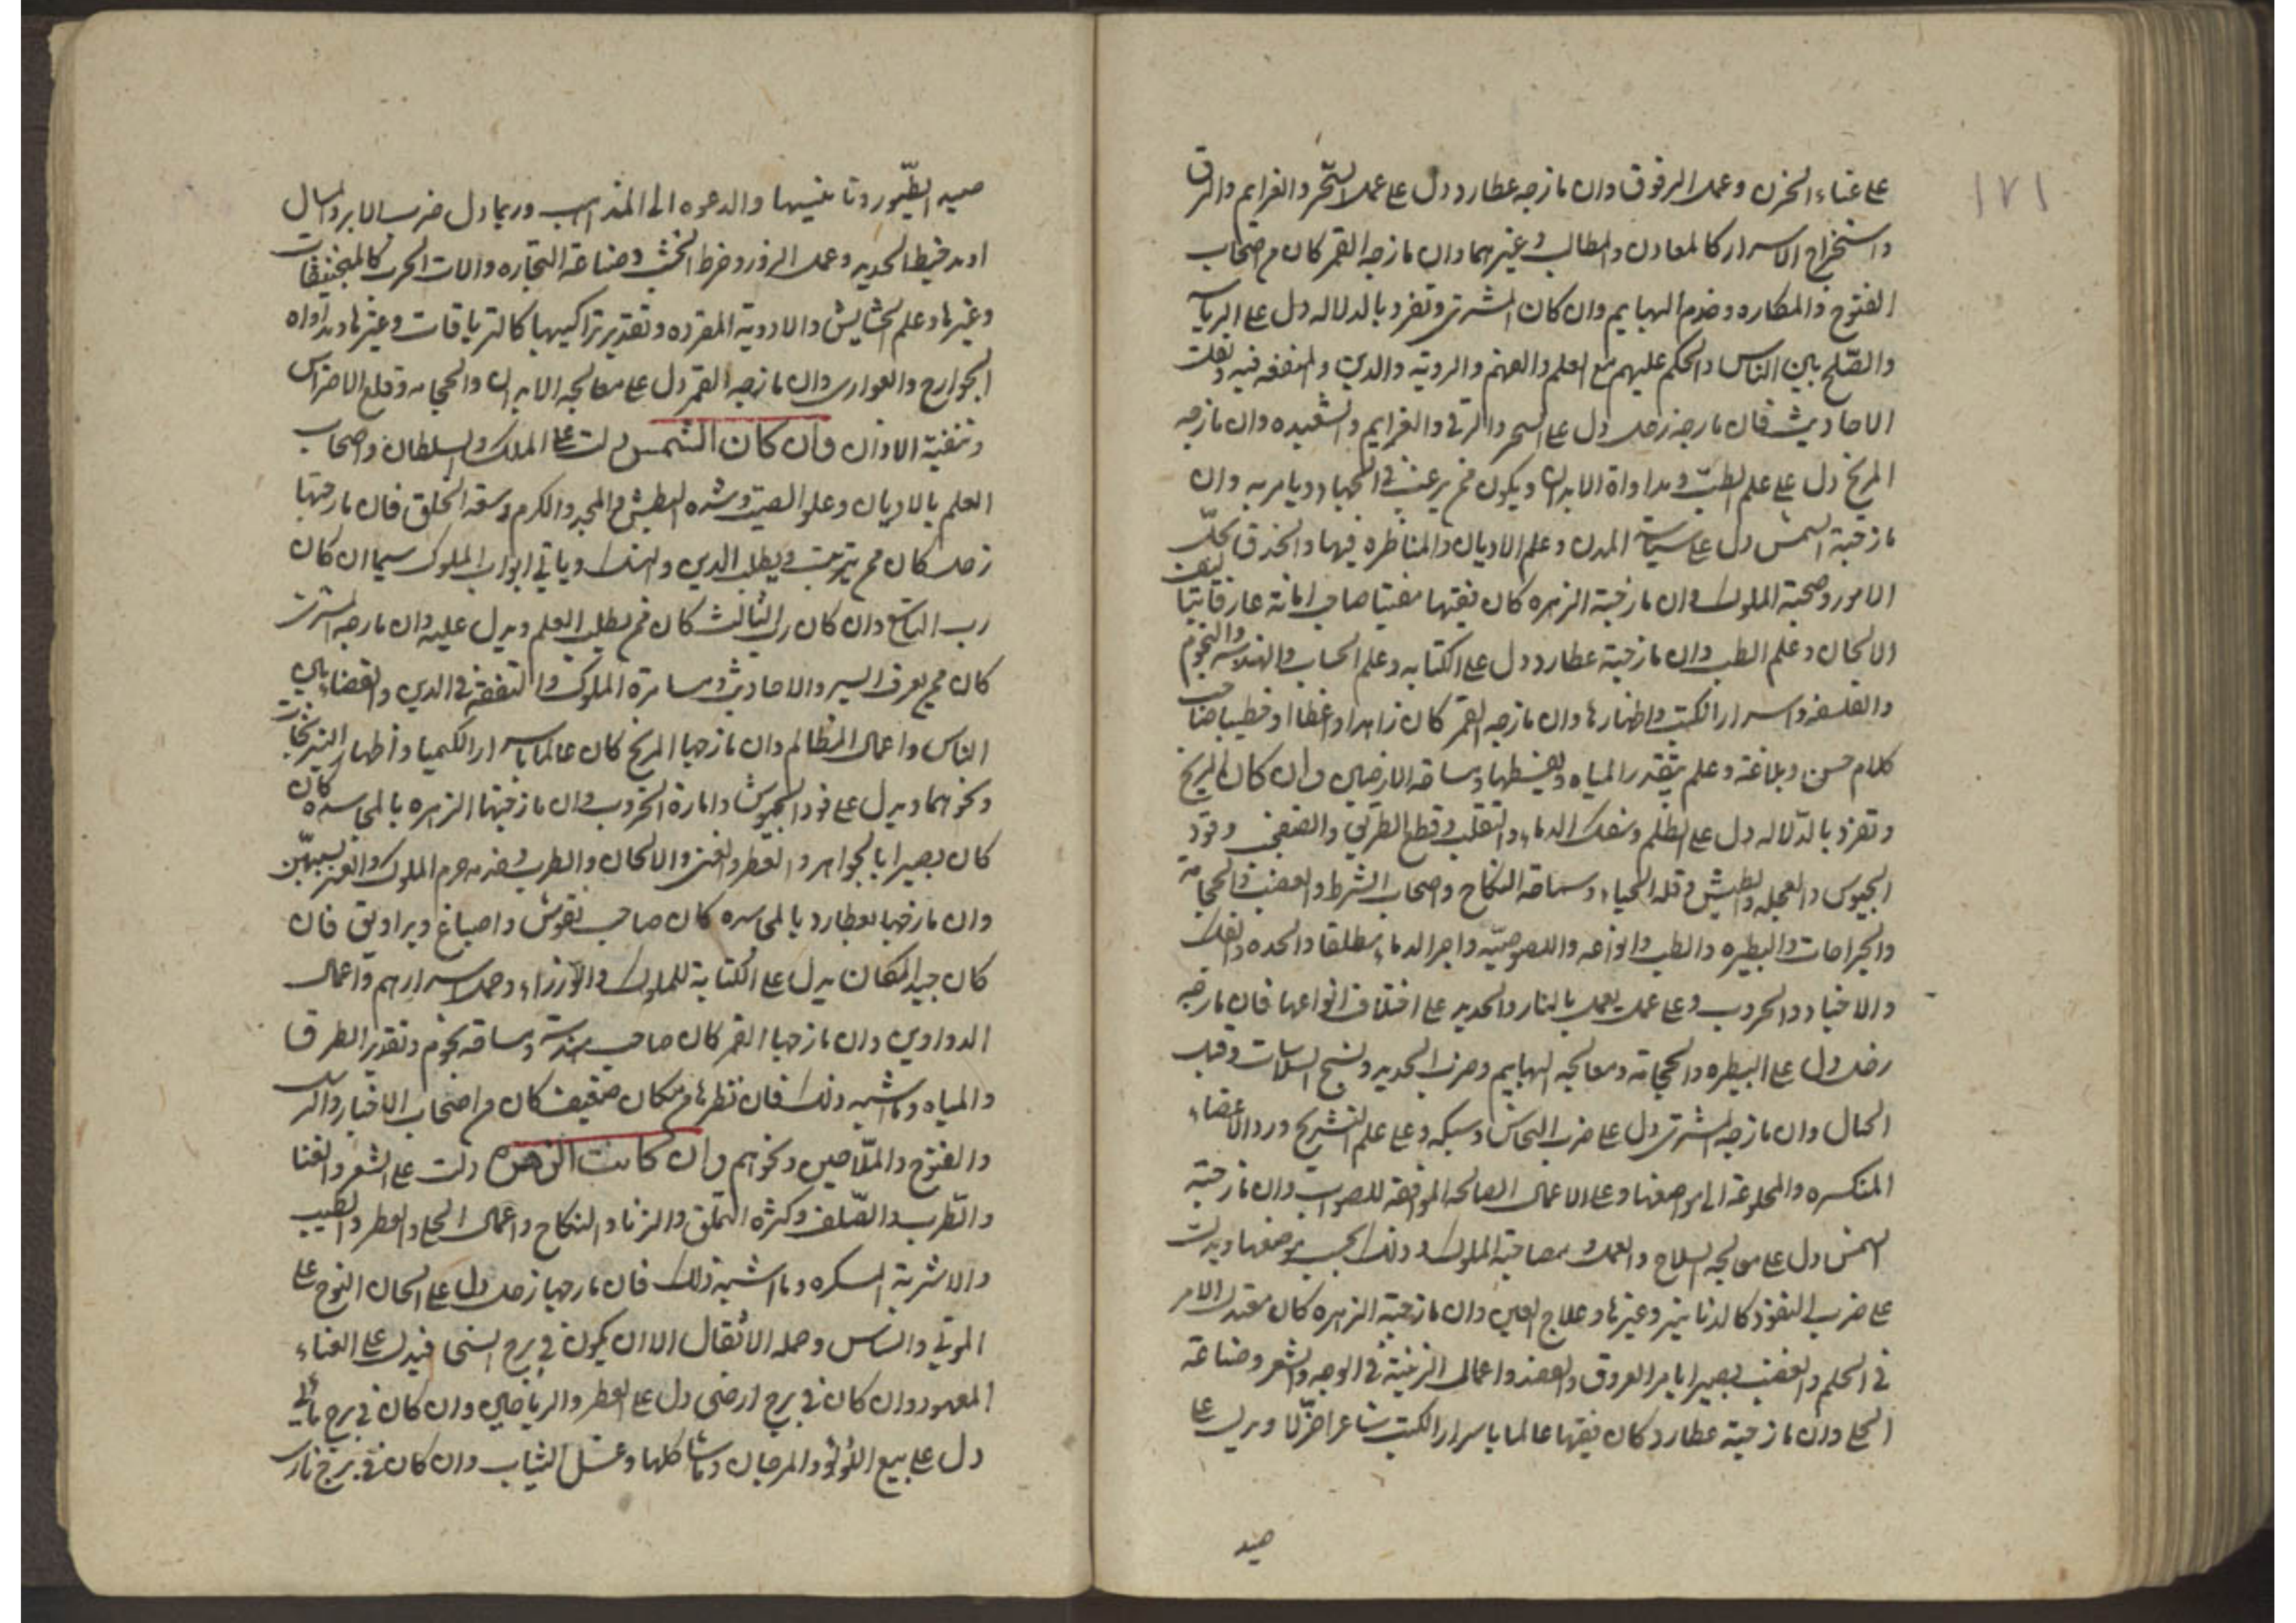 ١٧١
على غناء الحزن وعمل الرفوق وان مازجه عطارد دل على عمل السحر والغرايم والرق
واستخراج الاسرار كالمعادن والمطالب وغيرهما وان مازجه القمر كان من اصحاب
الفتوح والمكاره وخدم البهايم وان كان المشترى وتفرد بالدلاله دل على الرياسه
والصلح بين الناس والحكم عليهم مع العلم والفهم والروية والدين والمنفعه فيه ونقلت
الاحاديث فان مازجه زحل دل على السحر والرقى والغرايم والشعبده وان مازجه
المريخ دل على علم الطب ومداواة الابدان ويكون ممن يرغب فى الجهاد ويامر به وان
مازجته الشمس دل على سياسة المدن وعلم الاديان والمناظره فيها والحذق بحل
الامور وصحبة الملوك وان مازجته الزهره كان فقيها مفتيا صاحب امانة عارفا بتاليف
الالحان وعلم الطب وان مازجته عطارد دل على الكتابه وعلم الحساب والهندسه والنجوم
والفلسفه واسرار الكتب واظهارها وان مازجه القمر كان زاهدا واعظا او خطيبا صاحب
كلام حسن وبلاغة وعلم بتقدير المياه وبضبطها ومساحة الارضين وان كان المريخ
وتفرد بالدلاله دل على الظلم وسفك الدماء والتغلب وقطع الطريق والصفعى وقود
الجيوش والعجله والطيش وقله الحياء وسماجة النكاح واصحاب الشرط والغضب والحجامة
والجراحات والبيطره والطب وانواعه واللصوصيه واجرا الدماء مطلقا والحده والفتك
والاجناد والحروب وعلى عمل يعمل بالنار والحديد على اختلاف انواعها فان مازجه
زحل دل على البيطره والحجامة ومعالجه البهايم وضرب الحديد ونسج البلاسات وفتل
الحبال وان مازجه المشترى دل على ضرب النحاس وسبكه وعلى علم التشريح ورد الاعضاء
المنكسره والمخلوعة الى مواضعها وعلى الاعمال الصالحه الموافقة للصواب وان مازجته
الشمس دل على معالجه السلاح والعمل بمصاحبة الملوك وذلك بحسب موضعها ويدلت
على ضرب النقود كالدنانير وغيرها وعلاج العين وان مازجته الزهره كان معتدل الامر
فى الحلم والغضب بصيرا بامر العروق والفصد واعمال الزينة فى الوجه والشعر وصناعة
الحلى وان مازجته عطارد كان فقيها عالما باسرار الكتب شاعرا غزلا ويدل على
صيد
صيد الطيور وتانيسها والدعوه الى المذاهب وربما دل ضرب الابر والمسال
او تدقيط الحديد وعمل الزرد وخرط الخشب وصناعة النجاره والات الحرب كالمنجنيقات
وغيرها وعلم الحشايش والادوية المفرده وتقدير تراكيبها كالترياقات وغيرها ومداواه
الجوارح والعوارى وان مازجه القمر دل على معالجه الابدان والحجامه وقلع الاضراس
وتنقية الاذان وان كان الشمس دلت على الملك والسلطان واصحاب
العلم بالاديان وعلو الصيت وشده البطش والمجد والكرم وسعة الخلق فان مازجها
زحل كان ممن يترهب ويطلب الدين والنسك وياتى ابواب الملوك سيما ان كان
رب التاسع وان كان رب الثالث كان ممن يطلب العلم ويدل عليه وان مازجه المشترى
كان ممن يعرف السير والاحاديث ومسامرة الملوك والتفقه فى الدين والقضاء بين
الناس واعمال المظالم وان مازجها المريخ كان عالما باسرار الكيميا واظهار النيرنجات
ونحوهما ويدل على قود الجيوش وامارة الحروب وان مازجتها الزهره بالمجاسده كان
كان بصيرا بالجواهر والعطر والغنى والالحان والطرب وخدمه حرم الملوك والقرب بسببهن
وان مازجها بعطارد بالمجاسده كان صاحب نقوش واصباغ وبراويق فان
كان جيد المكان يدل على الكتابة للملوك والوزراء وحمل اسرارهم واعمال
الدواوين وان مازجها القمر كان صاحب هندسة ومساحة نجوم وتقدير الطرق
والمياه وما اشبه ذلك فان نظرها من مكان ضعيف كان من اصحاب الاخبار والبرد
والفتوح والملاحين ونحوهم وان كانت الزهره دلت على الشعر والغنا
والطرب والصلف وكثره التملق والزنا والنكاح واعمال الحلى والعطر والطيب
والاشربة المسكره وما اشبه ذلك فان مازجها زحل دل على الحان النوح على
على الموتى والناس وحمله الاثقال الا ان يكون فى برج انسى فيدل على الغناء
المعهود وان كان فى برج ارضى دل على العطر والرياحين وان كان فى برج مائى
دل على بيع اللؤلؤ والمرجان وما شاكلها وغسل الثياب وان كان فى برج نارى